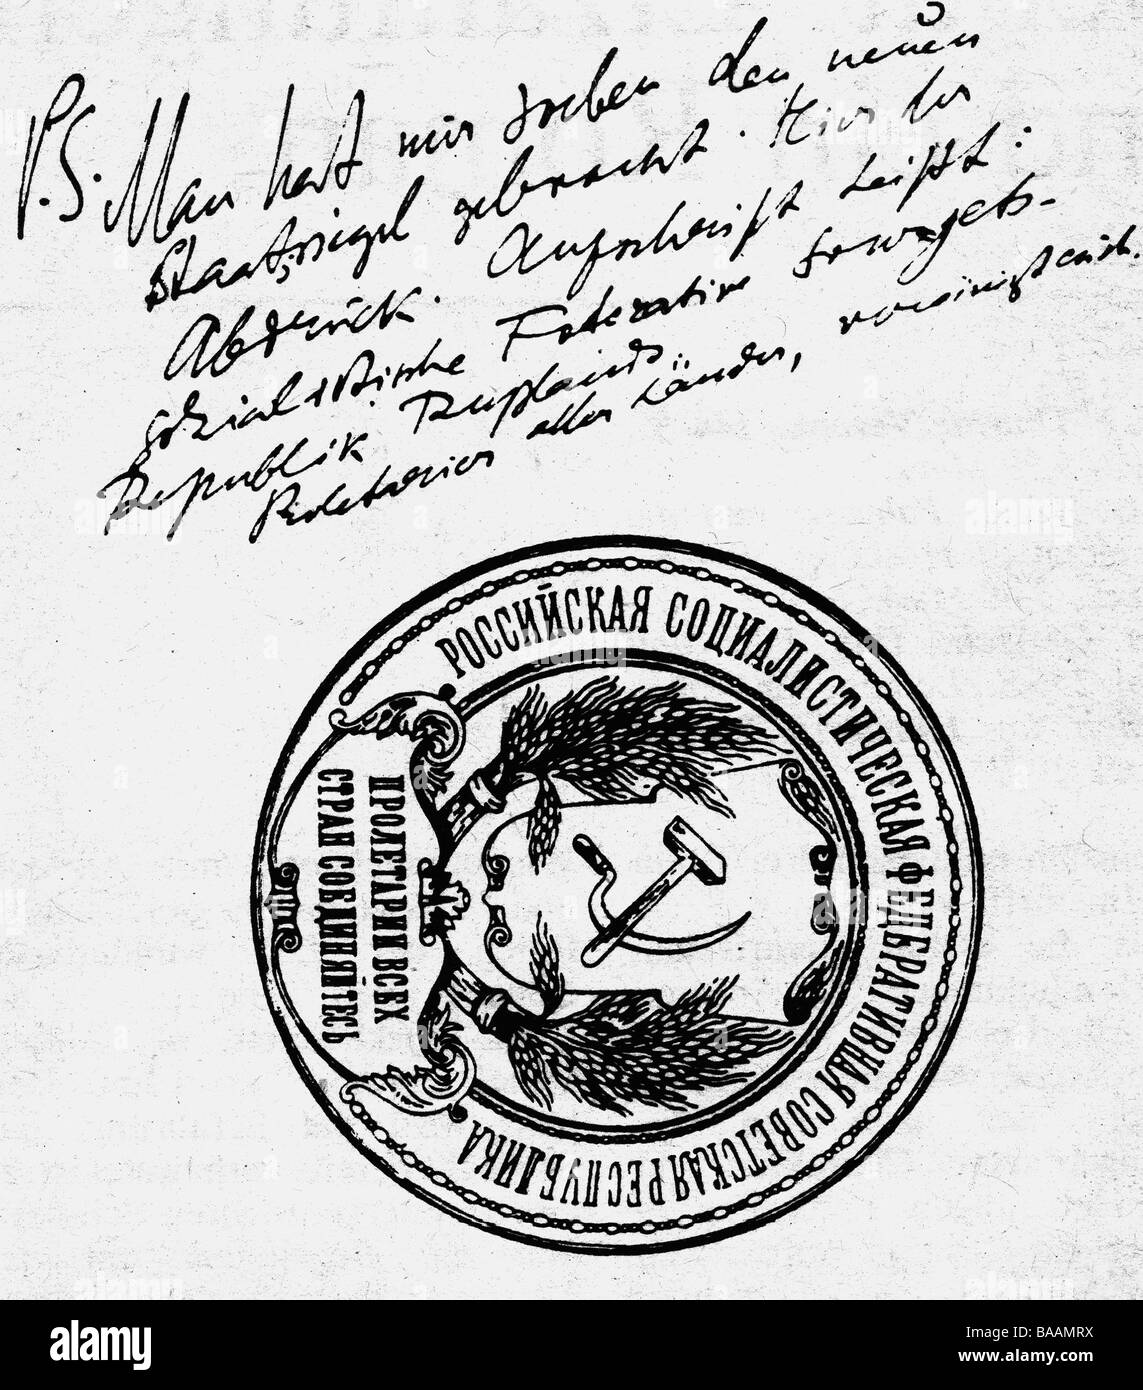 P.S. Man hat mir soeben den neuen
Staatssiegel gebracht. Hier der
Abdruck. Aufschrift heißt:
sozialistische Föderative Sowjets-
Republik Rußlands.
Proletarier aller Länder, vereinigt euch.
РОССИЙСКАЯ СОЦИАЛИСТИЧЕСКАЯ ФЕДЕРАТИВНАЯ СОВЕТСКАЯ РЕСПУБЛИКА
ПРОЛЕТАРИИ ВСЕХ
СТРАН СОЕДИНЯЙТЕСЬ
alamy
Image ID: BAAMRX
www.alamy.com